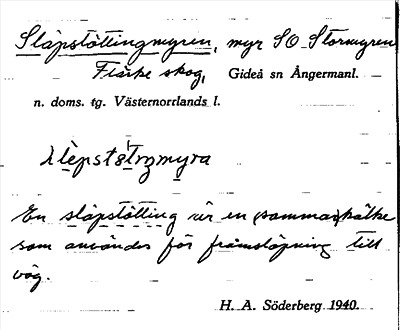 Släpstöttingmyren, myr SO Stormyren
Flärke skog, Gideå sn Ångermanl.
n. doms. tg. Västernorrlands l.
En släpstötting är en (sammar)kälke
som användes för framsläpning till
väg.
H. A. Söderberg 1940.